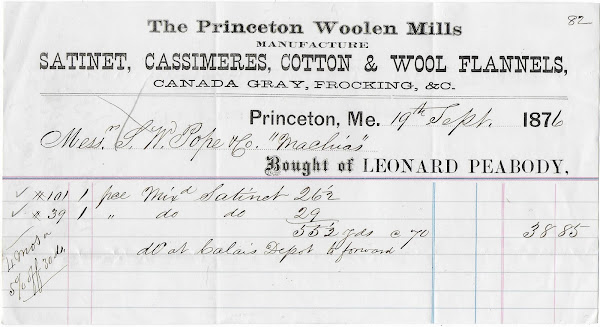 82
The Princeton Woolen Mills
MANUFACTURE
SATINET, CASSIMERES, COTTON & WOOL FLANNELS,
CANADA GRAY, FROCKING, &C.
Princeton, Me. 19th Sept. 1876
Mess.rs S. W. Pope & Co. "Machias"
Bought of LEONARD PEABODY,
✓ # 101 1 pce Mixd Satinet 26½
✓ " 39 1 " do do 29
55½ yds c 70 38 85
do at Calais Depot to forward
4 mos or
5% off 30 ds.